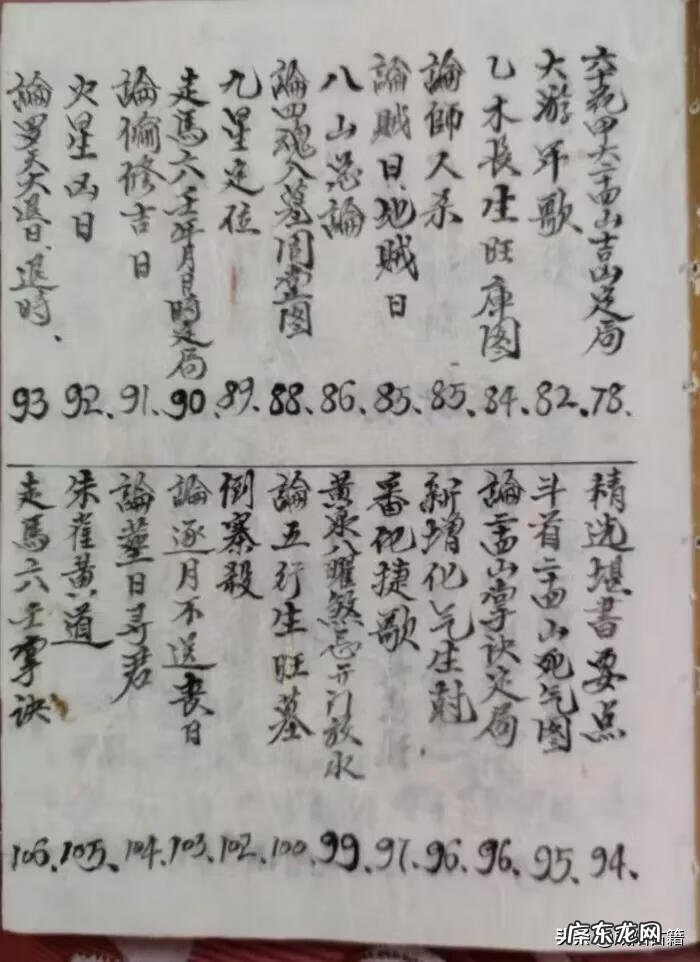 六十花甲六二十四山吉山定局 78.
大游年歌 82.
乙木長生旺庫图 84.
論師人杀 85.
論贼日、地贼日 85.
八山总論 86.
論四魂入墓周堂图 88.
九星定位 89.
走馬六壬年月日時定局 90.
論偷修吉日 91.
火星凶日 92.
論四天大退日、退時、 93
精选堪書要点 94.
斗首二十四山死气图 95.
論二十四山掌诀定局 96.
新增化气生尅 96.
番化捷歌 97.
黄泉八曜煞忌开门放水 99.
論五行生旺墓 100.
倒寨殺 102.
論逐月不送丧日 103.
論墓日寻君 104.
朱雀黄道 105.
走馬六壬掌诀 106.
头条
广东龙网
籍